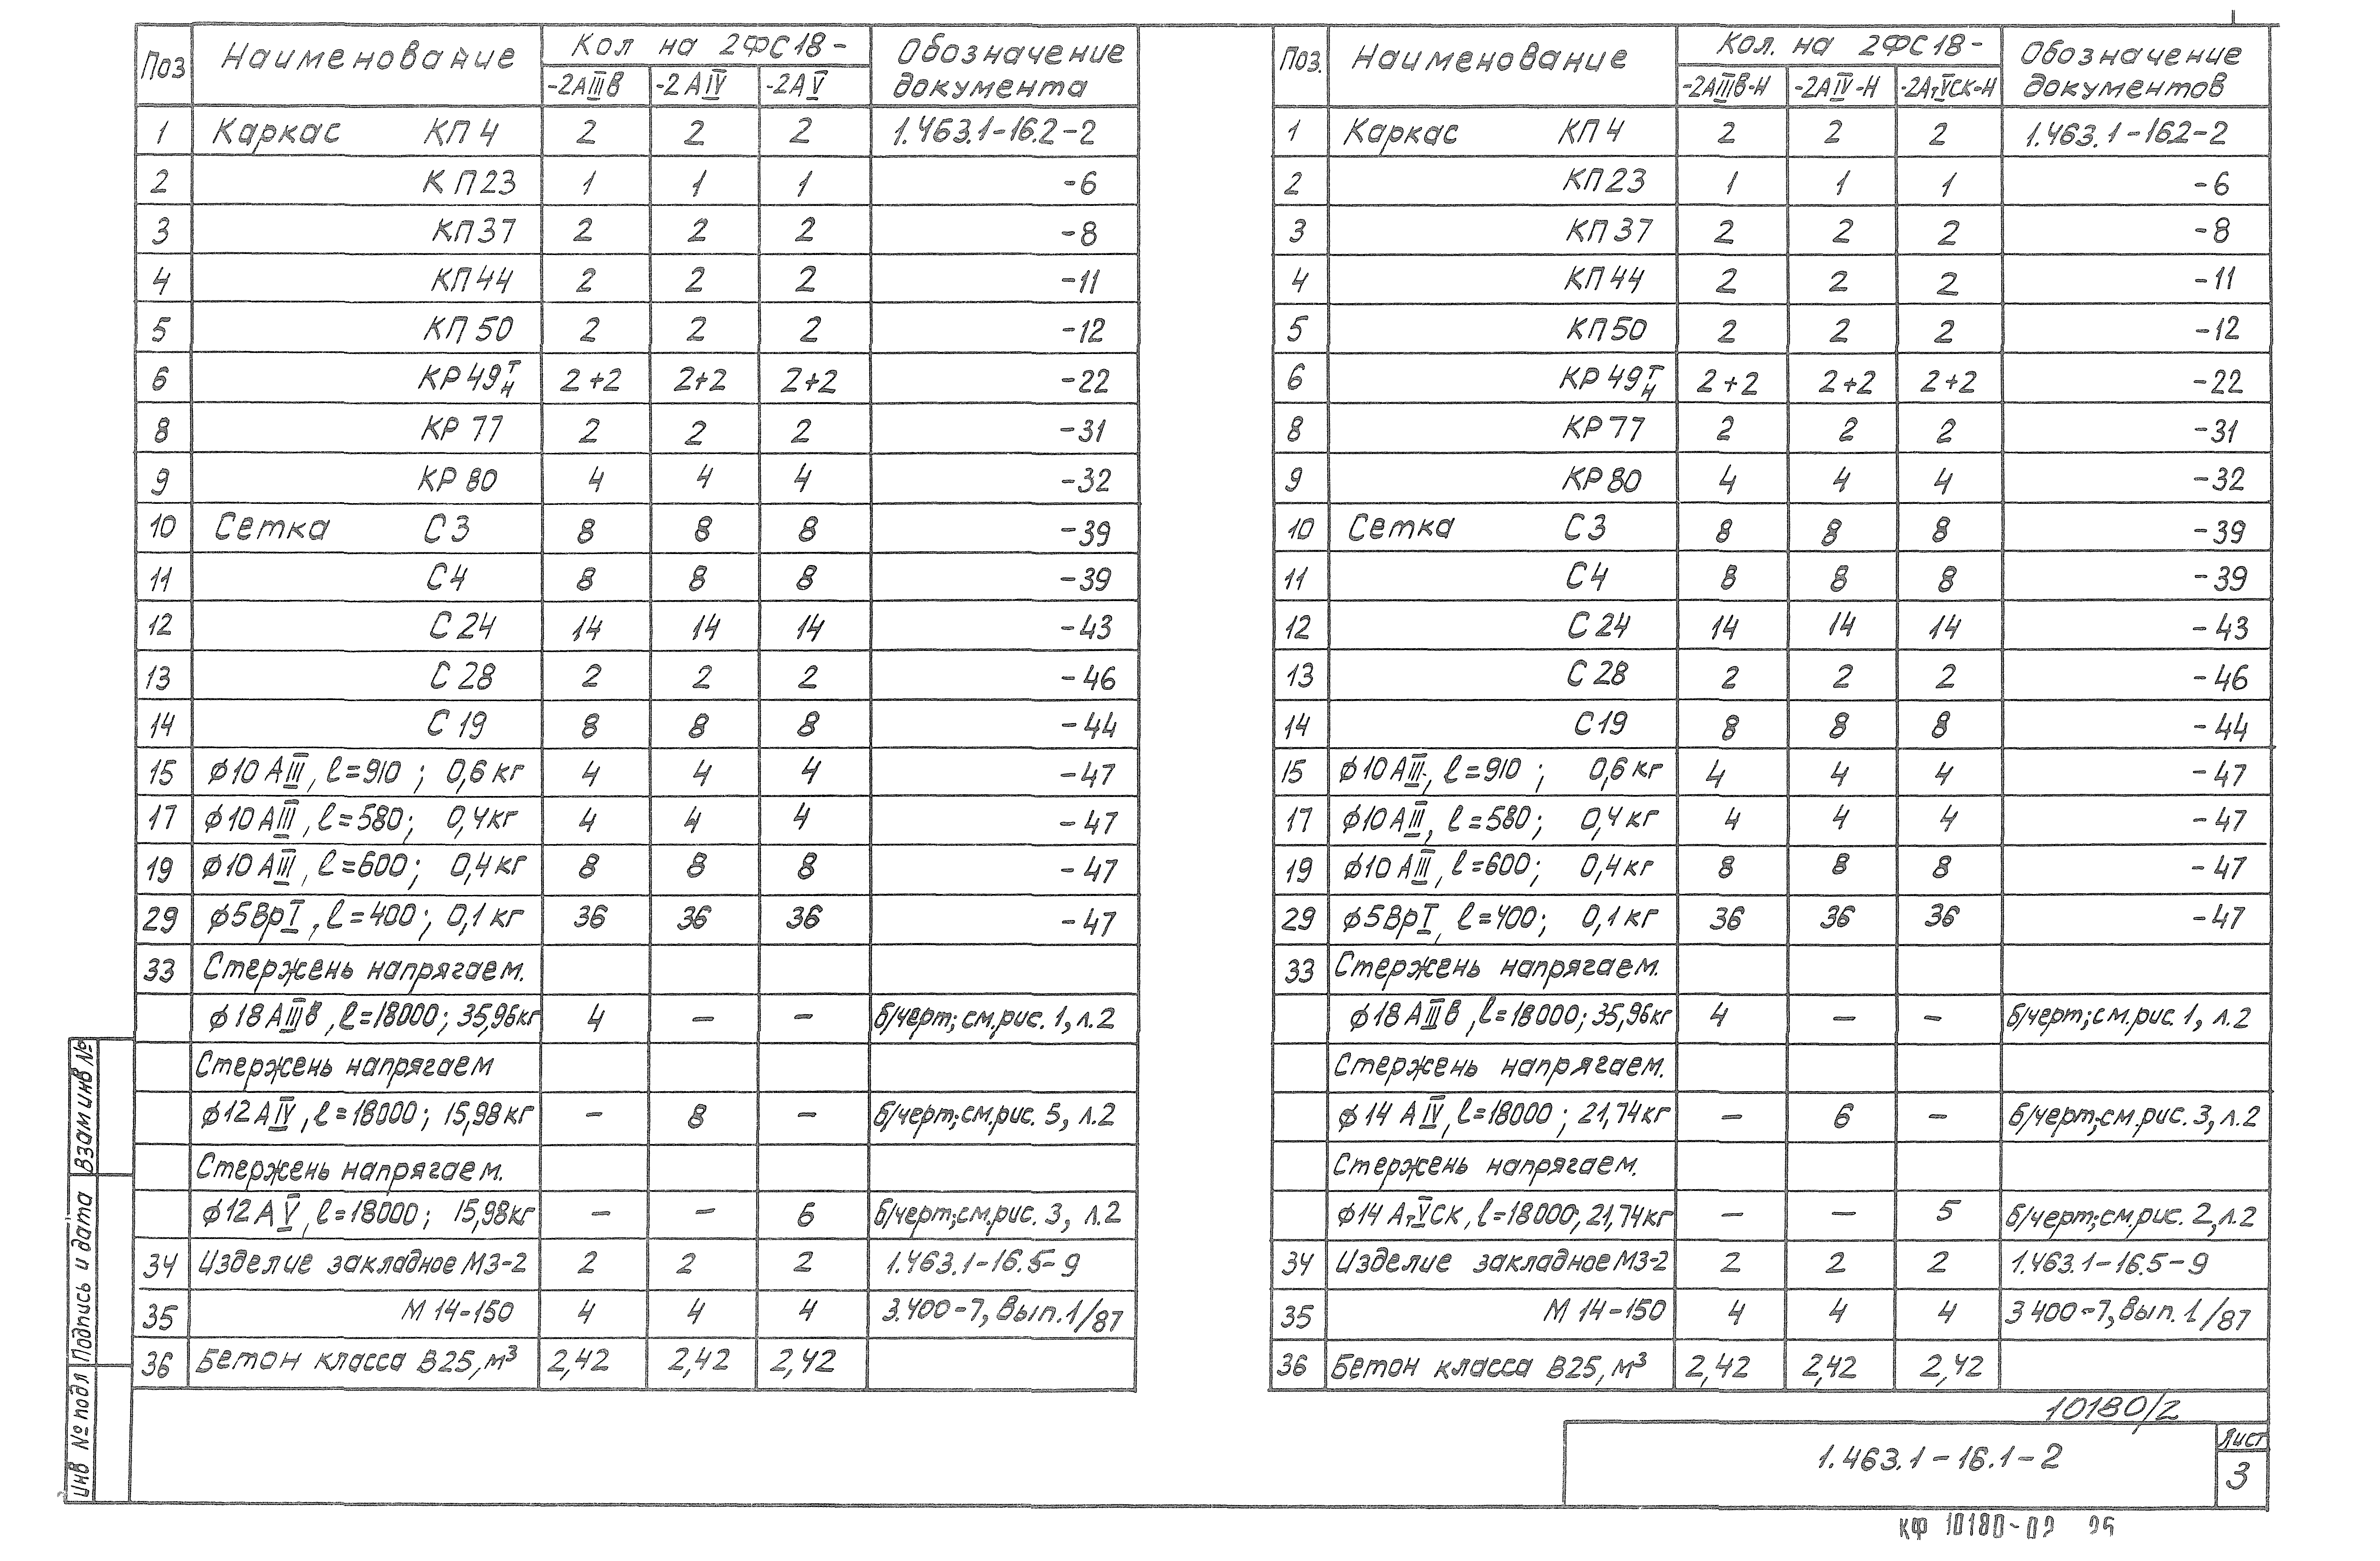 Поз Наименование Кол на 2ФС18- Обозначение документа
-2АIIIв -2АIV -2АV
1 Каркас КП4 2 2 2 1.463.1-16.2-2
2 КП23 1 1 1 -6
3 КП37 2 2 2 -8
4 КП44 2 2 2 -11
5 КП50 2 2 2 -12
6 КР49Т/Н 2+2 2+2 2+2 -22
8 КР77 2 2 2 -31
9 КР80 4 4 4 -32
10 Сетка С3 8 8 8 -39
11 С4 8 8 8 -39
12 С24 14 14 14 -43
13 С28 2 2 2 -46
14 С19 8 8 8 -44
15 ϕ10АIII, ℓ=910; 0,6кг 4 4 4 -47
17 ϕ10АIII, ℓ=580; 0,4кг 4 4 4 -47
19 ϕ10АIII, ℓ=600; 0,4кг 8 8 8 -47
29 ϕ5ВрI, ℓ=400; 0,1кг 36 36 36 -47
33 Стержень напрягаем.
ϕ18АIIIв, ℓ=18000; 35,96кг 4 – – б/черт; см.рис. 1, л.2
Стержень напрягаем
ϕ12АIV, ℓ=18000; 15,98кг – 8 – б/черт; см.рис. 5, л.2
Стержень напрягаем.
ϕ12АV, ℓ=18000; 15,98кг – – 6 б/черт; см.рис. 3, л.2
34 Изделие закладное МЗ-2 2 2 2 1.463.1-16.5-9
35 М14-150 4 4 4 3.400-7, Вып.1/87
36 Бетон класса В25, м³ 2,42 2,42 2,42
Поз. Наименование Кол. на 2ФС18- Обозначение документов
-2АIIIв-Н -2АIV-Н -2АтVСК-Н
1 Каркас КП4 2 2 2 1.463.1-162-2
2 КП23 1 1 1 -6
3 КП37 2 2 2 -8
4 КП44 2 2 2 -11
5 КП50 2 2 2 -12
6 КР49Т/Н 2+2 2+2 2+2 -22
8 КР77 2 2 2 -31
9 КР80 4 4 4 -32
10 Сетка С3 8 8 8 -39
11 С4 8 8 8 -39
12 С24 14 14 14 -43
13 С28 2 2 2 -46
14 С19 8 8 8 -44
15 ϕ10АIII, ℓ=910; 0,6кг 4 4 4 -47
17 ϕ10АIII, ℓ=580; 0,4кг 4 4 4 -47
19 ϕ10АIII, ℓ=600; 0,4кг 8 8 8 -47
29 ϕ5ВрI, ℓ=400; 0,1кг 36 36 36 -47
33 Стержень напрягаем.
ϕ18АIIIв, ℓ=18000; 35,96кг 4 – – б/черт; см.рис. 1, л.2
Стержень напрягаем.
ϕ14АIV, ℓ=18000; 21,74кг – 6 – б/черт; см.рис. 3, л.2
Стержень напрягаем.
ϕ14АтVСК, ℓ=18000; 21,74кг – – 5 б/черт; см.рис. 2, л.2
34 Изделие закладное МЗ-2 2 2 2 1.463.1-16.5-9
35 М14-150 4 4 4 3 400-7, Вып.1/87
36 Бетон класса В25, м³ 2,42 2,42 2,42
10180/2
1.463.1-16.1-2
Лист
3
Инв № подл Подпись и дата Взам инв №
КФ 10180-02